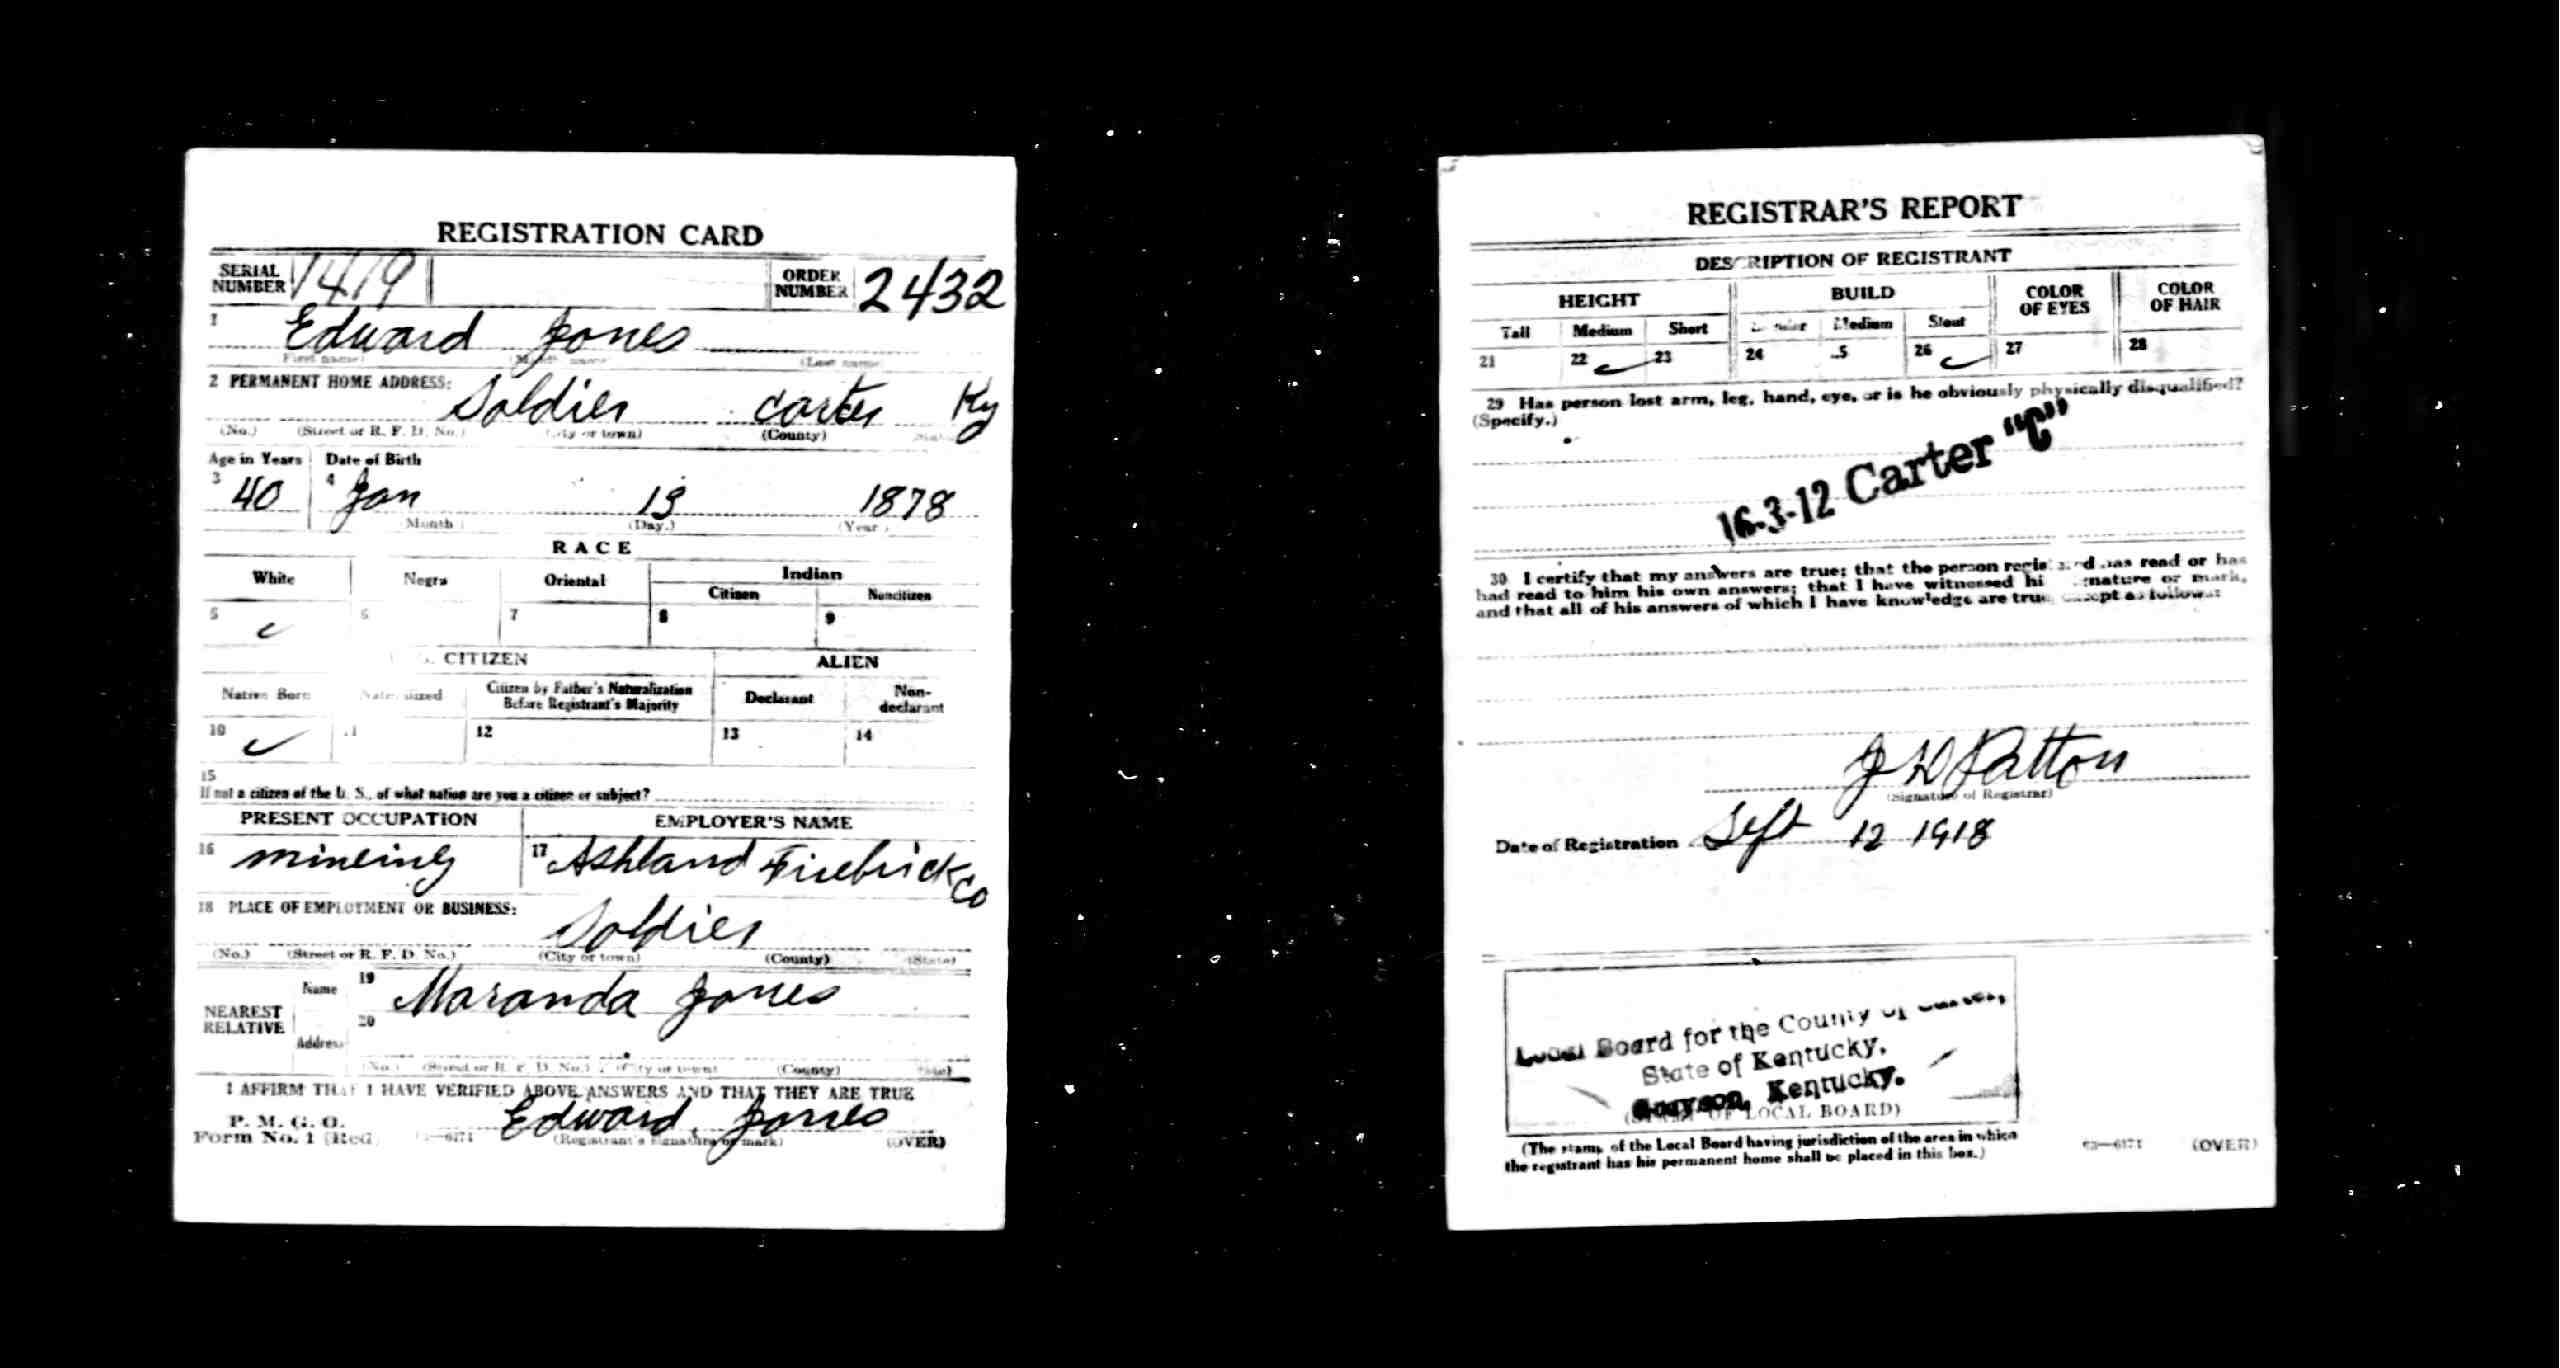 REGISTRATION CARD
SERIAL NUMBER 1419 ORDER NUMBER 2432
1 Edward Jones
(First name) (Middle name) (Last name)
2 PERMANENT HOME ADDRESS:
Soldier Carter Ky
(No.) (Street or R. F. D. No.) (City or town) (County) (State)
Age in Years Date of Birth
3 40 4 Jan 13 1878
Month (Day.) (Year)
RACE
White Negro Oriental Indian
Citizen Noncitizen
5 6 7 8 9
CITIZEN ALIEN
Native Born Naturalized Citizen by Father's Naturalization Before Registrant's Majority Declarant Non-declarant
10 11 12 13 14
15
If not a citizen of the U. S., of what nation are you a citizen or subject?
PRESENT OCCUPATION EMPLOYER'S NAME
16 mineing 17 Ashland Firebrick Co
18 PLACE OF EMPLOYMENT OR BUSINESS:
Soldier
(No.) (Street or R. F. D. No.) (City or town) (County) (State)
NEAREST RELATIVE Name 19 Maranda Jones
Address 20
(No.) (Street or R. F. D. No.) (City or town) (County) (State)
I AFFIRM THAT I HAVE VERIFIED ABOVE ANSWERS AND THAT THEY ARE TRUE
P. M. G. O.
Form No. 1 (Red) Edward Jones
(Registrant's signature or mark) (OVER)
REGISTRAR'S REPORT
DESCRIPTION OF REGISTRANT
HEIGHT BUILD COLOR OF EYES COLOR OF HAIR
Tall Medium Short Slender Medium Stout
21 22 23 24 25 26 27 28
29 Has person lost arm, leg, hand, eye, or is he obviously physically disqualified?
(Specify.)
16-3-12 Carter "C"
30 I certify that my answers are true; that the person registered has read or has
had read to him his own answers; that I have witnessed his signature or mark,
and that all of his answers of which I have knowledge are true, except as follows:
J D Patton
(Signature of Registrar)
Date of Registration Sept 12 1918
Local Board for the County of Carter,
State of Kentucky,
Grayson, Kentucky.
(STAMP OF LOCAL BOARD)
(The stamp of the Local Board having jurisdiction of the area in which
the registrant has his permanent home shall be placed in this box.)
03—6171 (OVER)